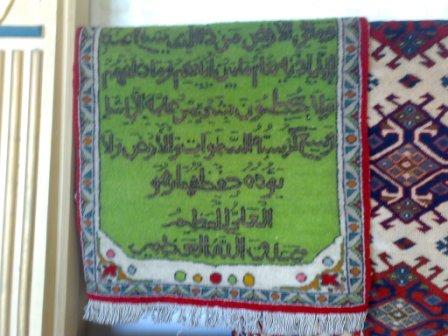 وما في الارض من ذا الذي يشفع عنده
إلا بإذنه يعلم ما بين أيديهم وما خلفهم
ولا يحيطون بشيء من علمه إلا بما شا
وسع كرسيه السموات والأرض ولا
يؤده حفظهما وهو
العلي العظيم
صدق الله العظيم